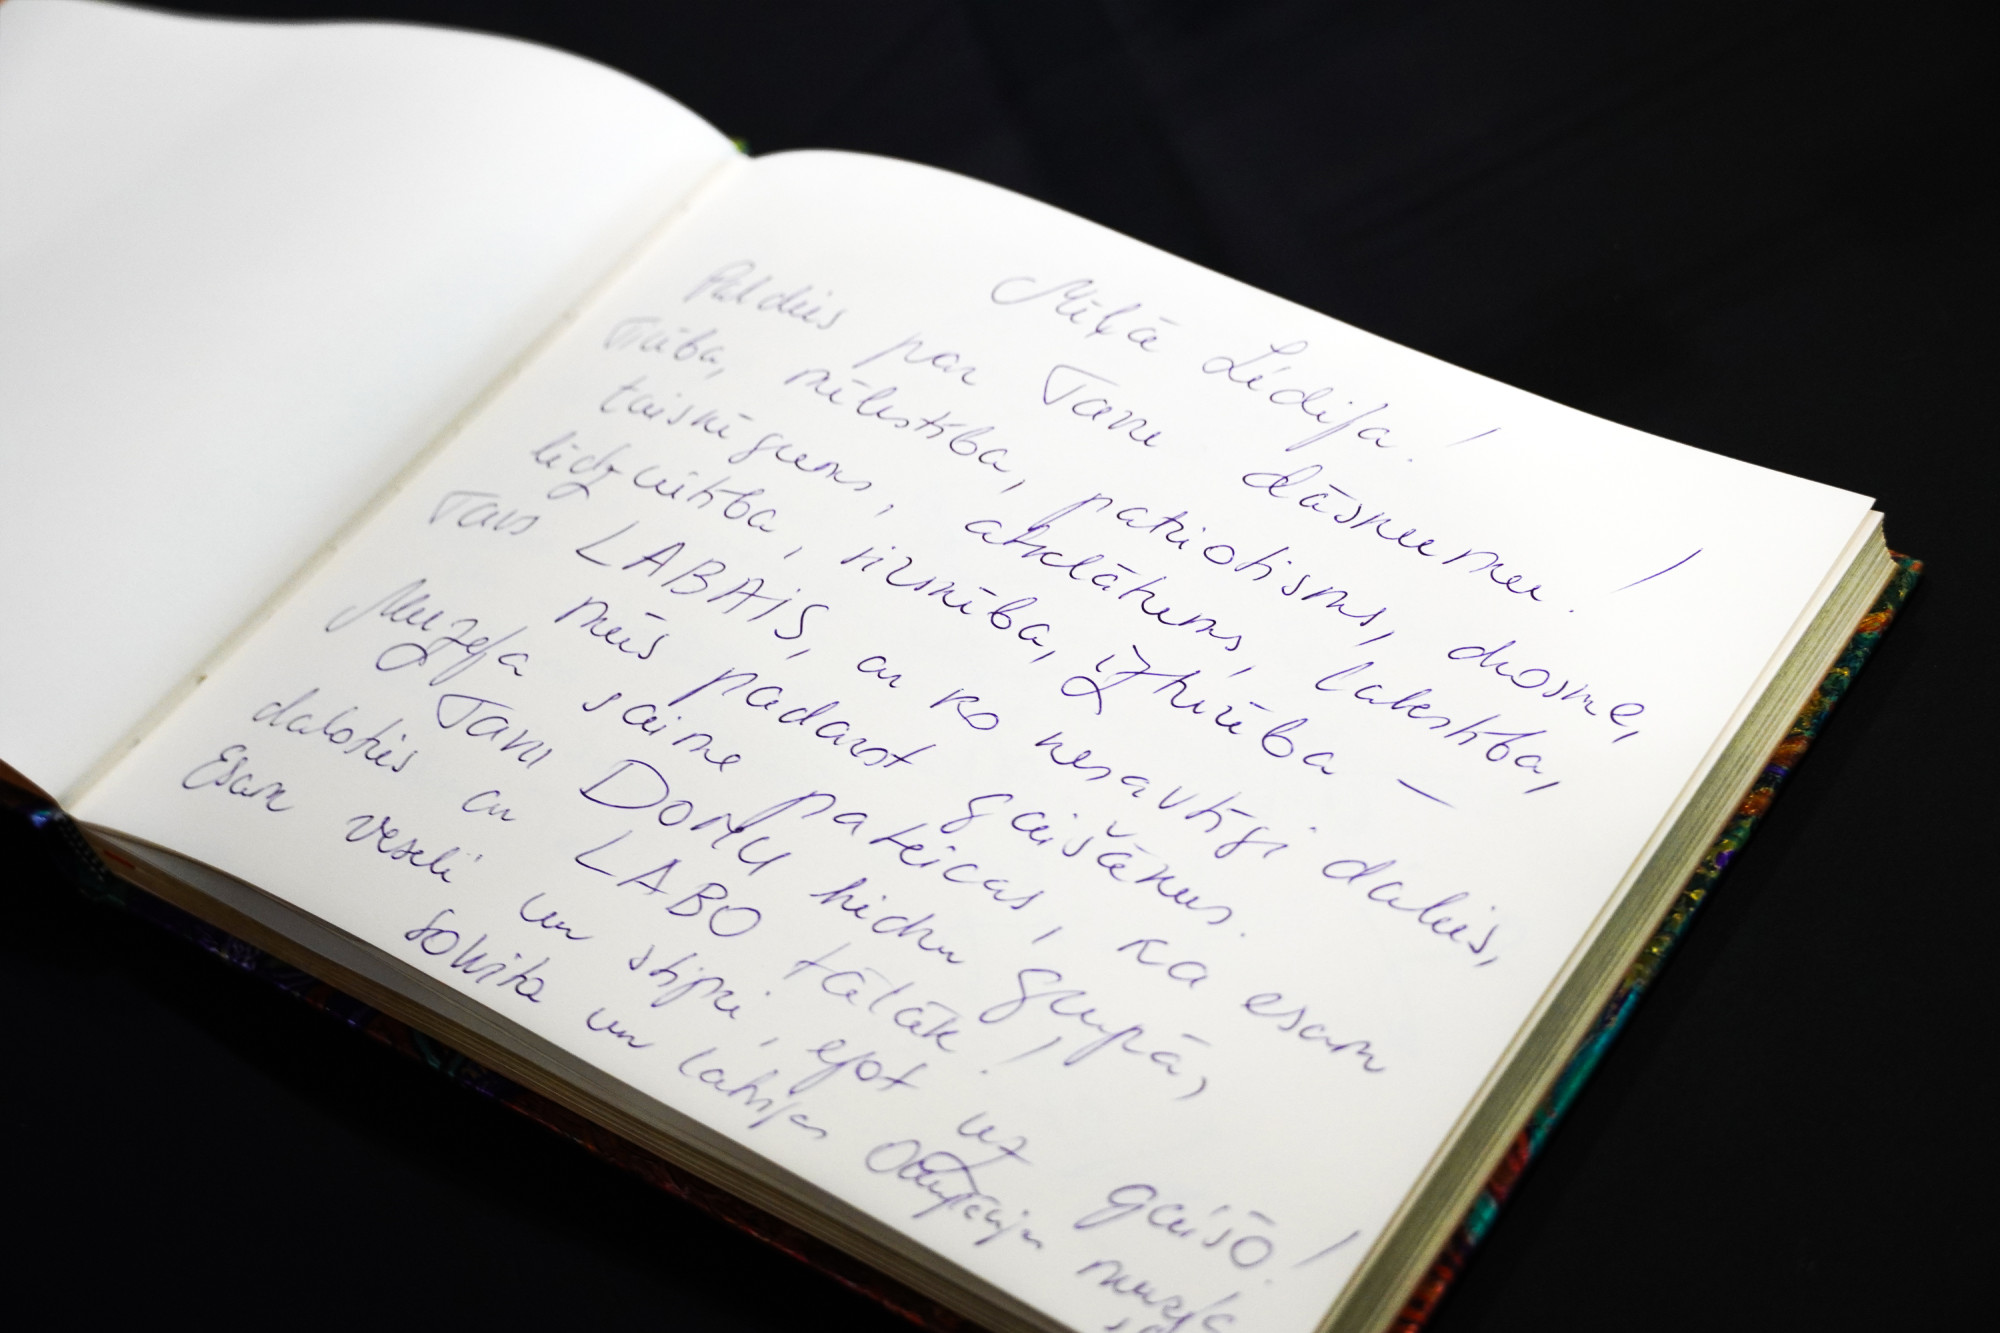 Mīļā Lidija!
Paldies par Tavu dāsnumu!
Ticība, mīlestība, patriotisms, drosme,
taisnīgums, atklātums, labestība,
līdzcietība, rīcība, izturība –
Tavs LABAIS, ar ko nesavtīgi dalies,
mūs padarot gaišākus.
Muzeja saime pateicas, ka esam
Tavu Domu biedru grupā,
daloties ar LABO tālāk!
Esam veseli un stipri, ejot uz gaišo!
un Latvijas Okupācijas muzeja